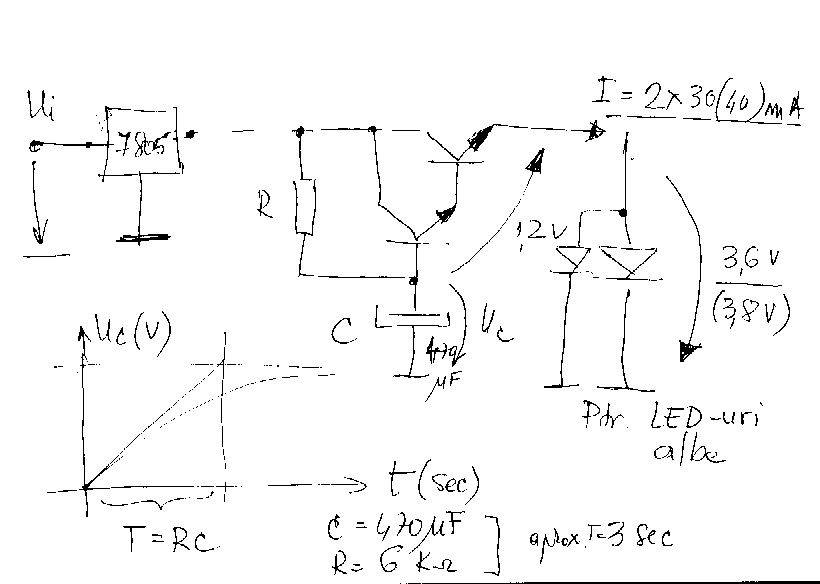 Ui
7805
I = 2x30(40)mA
R
1,2V
3,6V
(3,8V)
C
470
µF
Uc
Uc(V)
Ptr. LED-uri
albe
t(sec)
T=RC
C = 470µF
R = 6 KΩ
aprox. T=3 sec